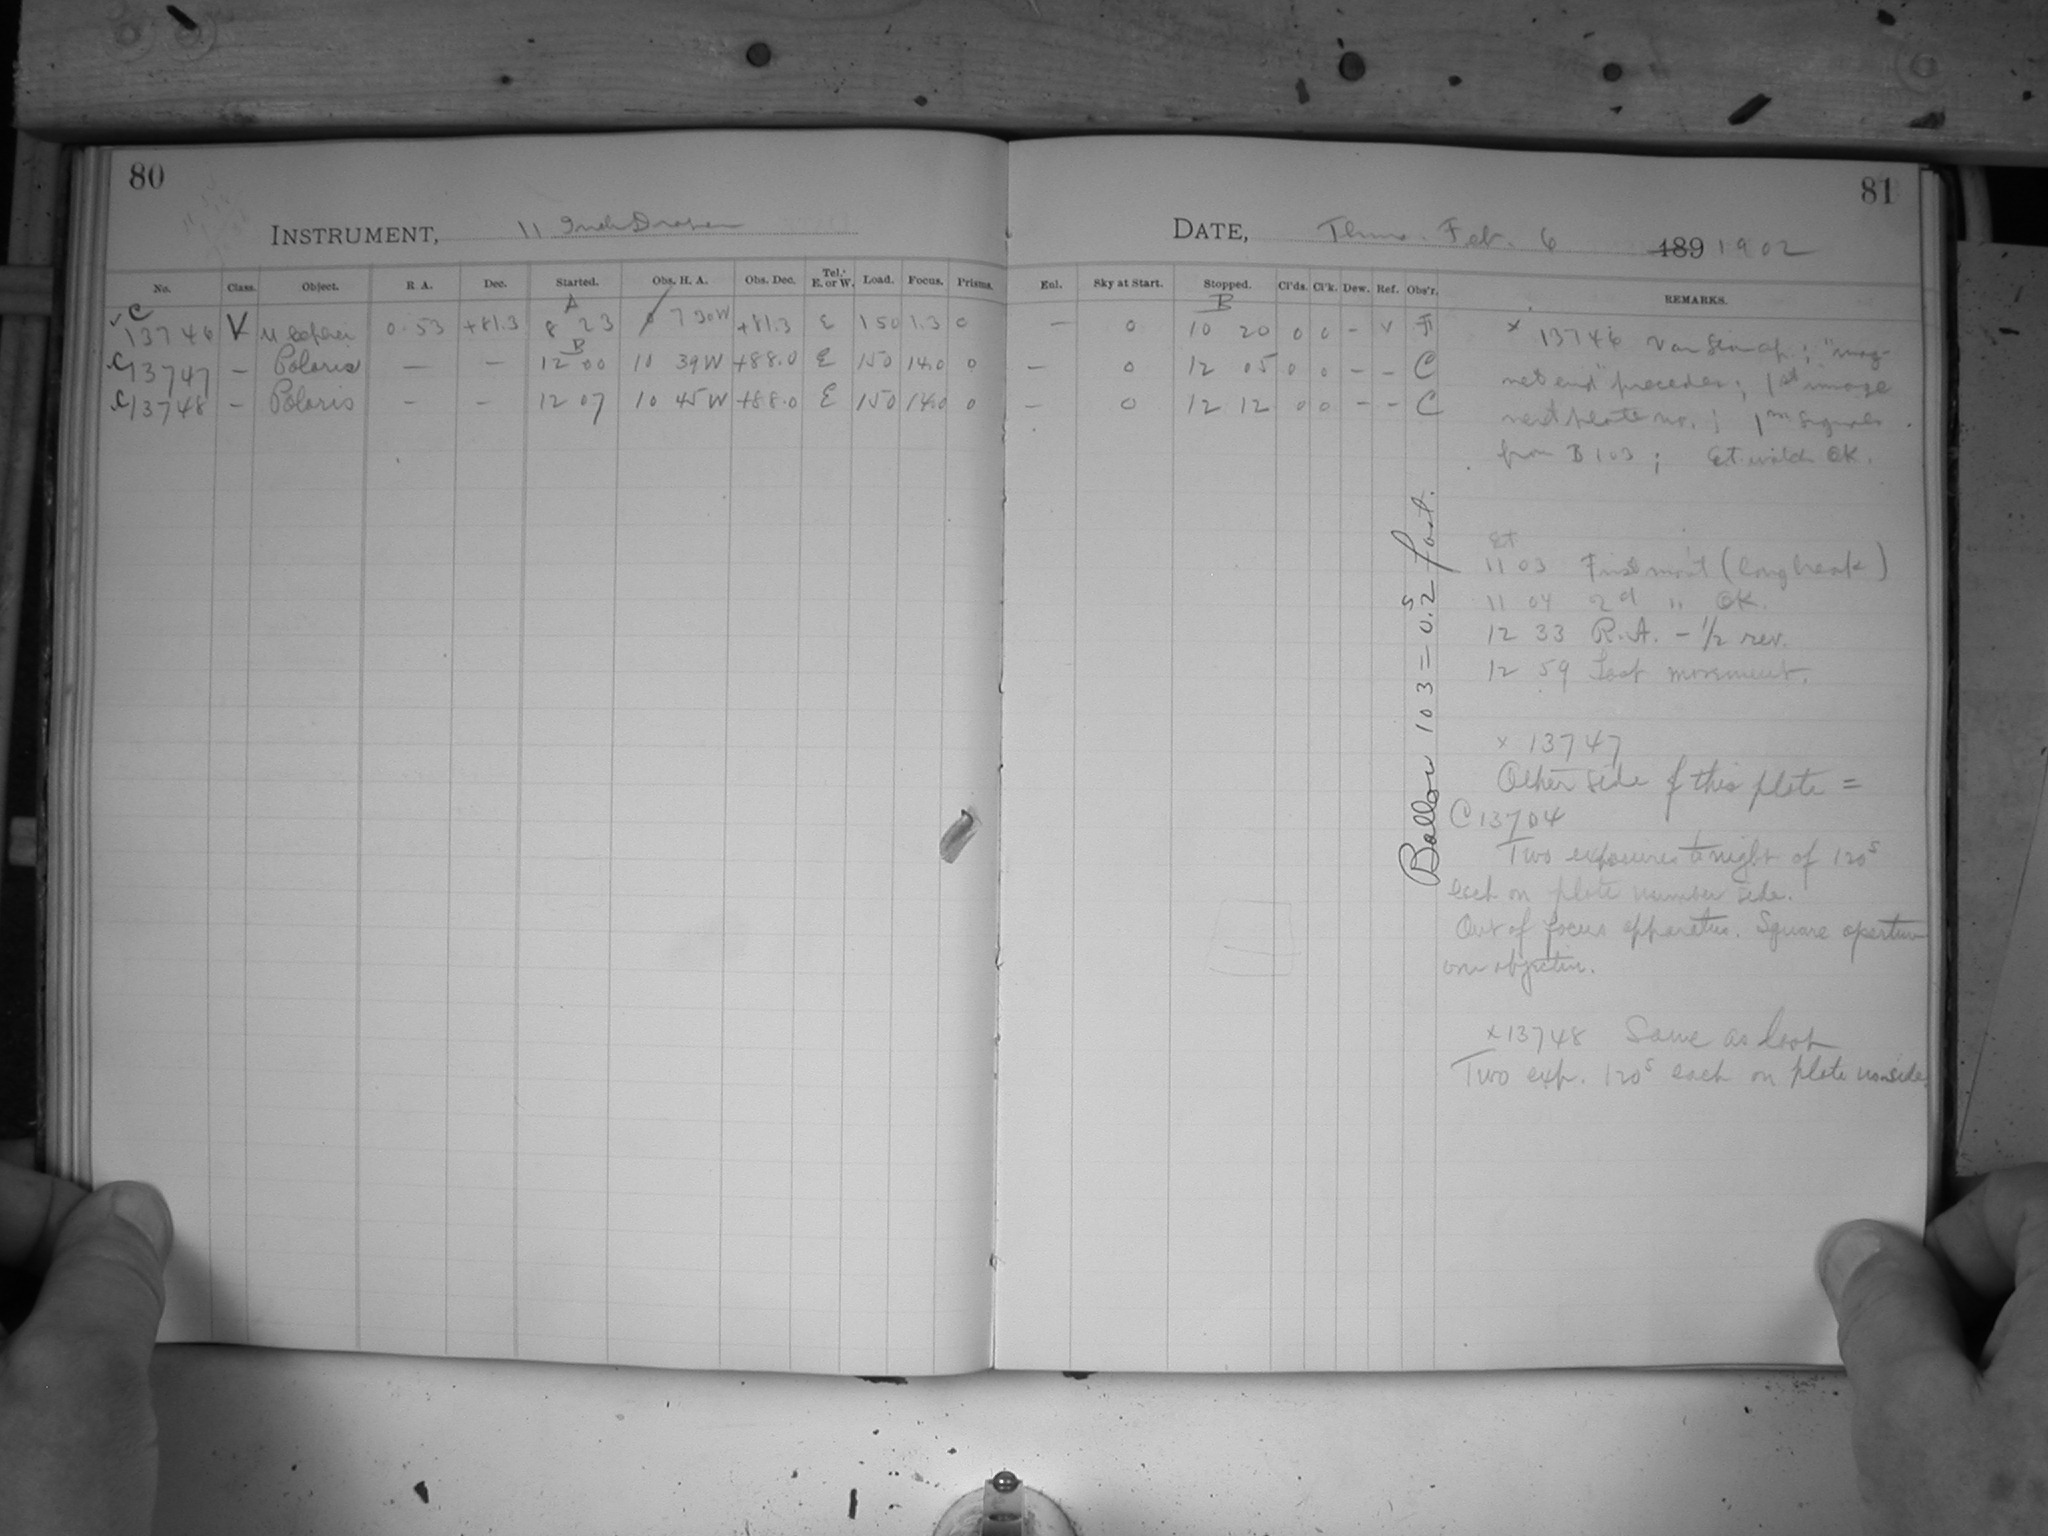 80
INSTRUMENT, 11 Inch Draper
No. Class. Object. R A. Dec. Started. Obs. H. A. Obs. Dec. Tel. E. or W. Load. Focus. Prisms.
C A
13746 V U Cephei 0 53 +81.3 8 23 7 30W +81.3 E 150 1.3 0
B
C13747 – Polaris – – 12 00 10 39W +88.0 E 150 14.0 0
C13748 – Polaris – – 12 07 10 45W +88.0 E 150 14.0 0
81
DATE, Thurs. Feb. 6 189 1902
Enl. Sky at Start. Stopped. Cl'ds. Cl'k. Dew. Ref. Obs'r. REMARKS.
B
– 0 10 20 0 0 – v F
– 0 12 05 0 0 – – C
– 0 12 12 0 0 – – C
Ballou 103 = 0.2s fast.
x 13746 ; "mag-
net end" precedes; 1st image
next plate no.; 1m signals
from B 103; watch OK.
11 03 First (long break)
11 04 2d " OK.
12 33 R.A. – 1/2 rev.
12 59 Last movement.
x 13747
Other side of this plate =
C 13704
Two exposures tonight of 120s
each on plate number side.
Out of focus apparatus. Square aperture
over objective.
x 13748 Same as last
Two exp. 120s each on plate no. side